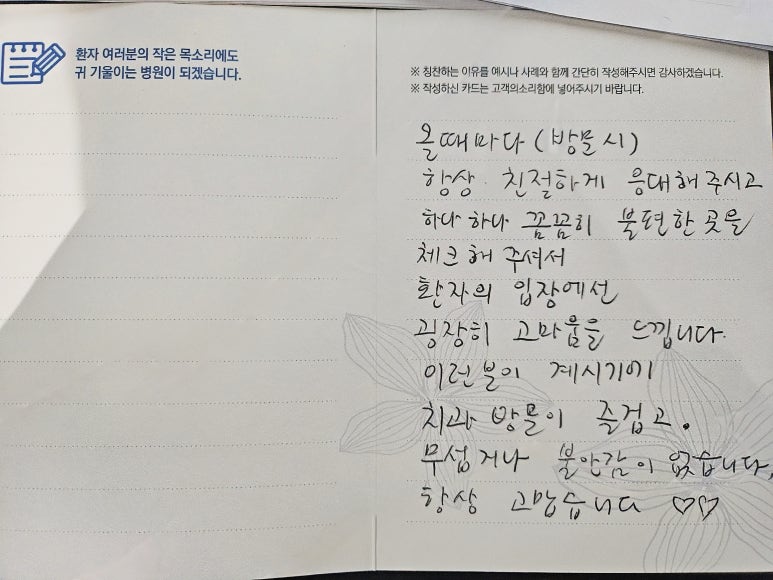 환자 여러분의 작은 목소리에도
귀 기울이는 병원이 되겠습니다.
※ 칭찬하는 이유를 예시나 사례와 함께 간단히 작성해주시면 감사하겠습니다.
※ 작성하신 카드는 고객의소리함에 넣어주시기 바랍니다.
올때마다 (방문시)
항상 친절하게 응대해주시고
하나하나 꼼꼼히 불편한 곳을
체크해 주셔서
환자의 입장에선
굉장히 고마움을 느낍니다.
이런분이 계시기에
치과 방문이 즐겁고.
무섭거나 불안감이 없습니다.
항상 고맙습니다 ♡♡